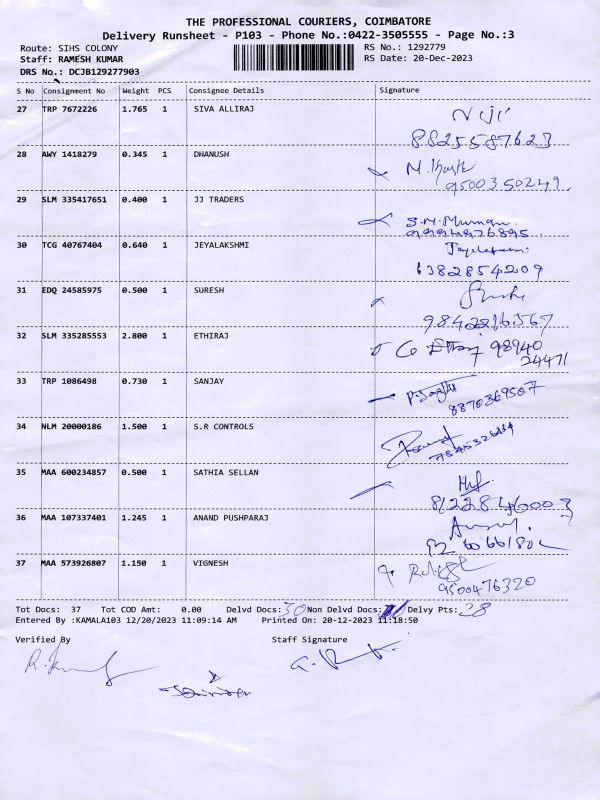 THE PROFESSIONAL COURIERS, COIMBATORE
Delivery Runsheet - P103 - Phone No.:0422-3505555 - Page No.:3
Route: SIHS COLONY RS No.: 1292779
Staff: RAMESH KUMAR RS Date: 20-Dec-2023
DRS No.: DCJB129277903
S No Consignment No Weight PCS Consignee Details Signature
27 TRP 7672226 1.765 1 SIVA ALLIRAJ
8825587623
28 AWY 1418279 0.345 1 DHANUSH
9500350249
29 SLM 335417651 0.400 1 JJ TRADERS
S.M.Murugan
9994976895
30 TCG 40767404 0.640 1 JEYALAKSHMI
Jeyalakshmi
6382854209
31 EDQ 24585975 0.500 1 SURESH
9842216367
32 SLM 335285553 2.800 1 ETHIRAJ
98940
24471
33 TRP 1086498 0.730 1 SANJAY
8870369507
34 NLM 20000186 1.500 1 S.R CONTROLS
35 MAA 600234857 0.500 1 SATHIA SELLAN
36 MAA 107337401 1.245 1 ANAND PUSHPARAJ
37 MAA 573926807 1.150 1 VIGNESH
9500476320
Tot Docs: 37 Tot COD Amt: 0.00 Delvd Docs: 30 Non Delvd Docs: Delvy Pts: 28
Entered By :KAMALA103 12/20/2023 11:09:14 AM Printed On: 20-12-2023 11:18:50
Verified By Staff Signature